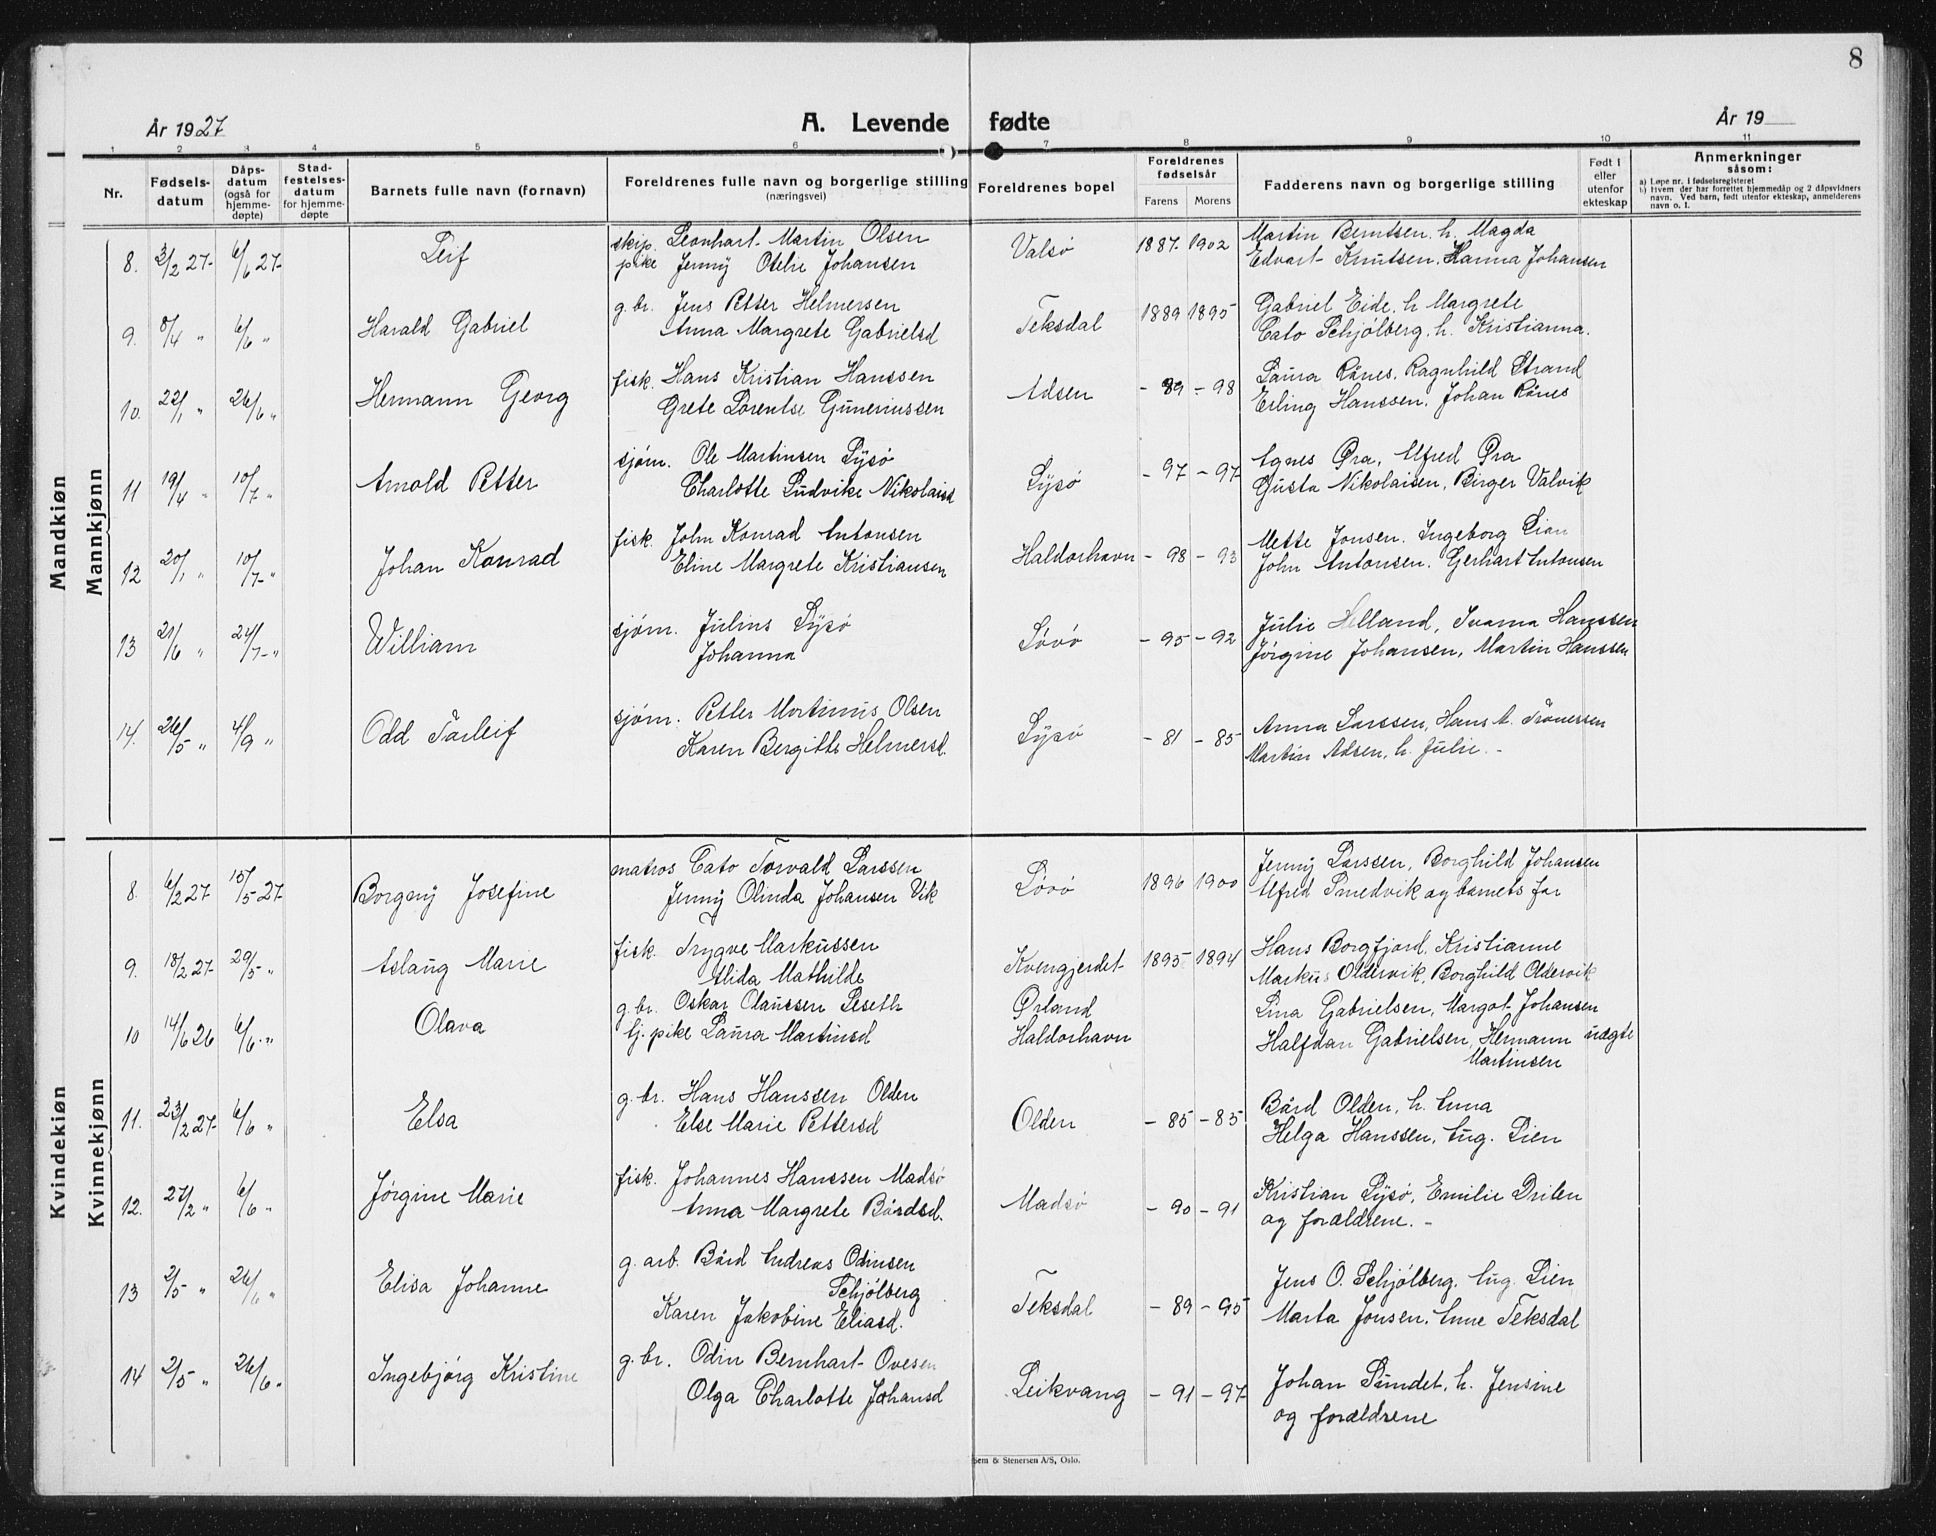 8
År 1927 A. Levende fødte År 19
1 2 3 4 5 6 7 8 9 10 11
Nr. Fødsels-datum Dåps-datum (også for hjemme-døpte) Stad-festelses-datum for hjemme-døpte Barnets fulle navn (fornavn) Foreldrenes fulle navn og borgerlige stilling (næringsvei) Foreldrenes bopel Foreldrenes fødselsår Farens Morens Fadderens navn og borgerlige stilling Født i eller utenfor ekteskap Anmerkninger såsom:
a) Løpe nr. i fødselsregisteret
b) Hvem der har forrettet hjemmedåp og 2 dåpsvidners navn. Ved barn, født utenfor ekteskap, anmelderens navn o. l.
Mandkiøn
Mannkjønn
8. 3/2 27- 6/6 27- Leif skip. Leonhart Martin Olsen Valsø 1887- 1902 Martin Berntsen. h. Magda
pike Jenny Otelie Johansen Edvart Knutsen. Hanna Johansen
9. 8/4 " 6/6 " Harald Gabriel g.br. Jens Petter Helmersen Teksdal 1889 1895 Gabriel Eide. h Margrete
Anna Margrete Gabrielsd Cato Schjølberg. h. Kristianna.
10. 22/1 " 26/6 " Hermann Georg fisk. Hans Kristian Hanssen Adsen - 89 - 98 Laura Rånes. Ragnhild Strand
Grete Lorentse Guneriussen Erling Hanssen. Johan Rånes
11 19/4 " 10/7 " Arnold Petter sjøm. Ole Martinsen Lysø Lysø - 97 - 97 Agnes Øra, Alfred Øra
Charlotte Ludvike Nikolaisd Gusta Nikolaisen, Birger Valvik
12 20/1 " 10/7 - " Johan Konrad fisk. John Konrad Antonsen Haldorhavn - 98 - 93 Mette Jonsen. Ingeborg Lian
Eline Margrete Kristiansen John Antonsen. Gerhart Antonsen
13 21/6 " 24/7 - " William sjøm. Julius Lysø Løvø - 95 - 92 Julie Helland, Ivanna Hanssen
Johanna Jørgine Johansen, Martin Hanssen
14. 26/5 " 4/9 " Odd Torleif sjøm. Petter Martinus Olsen Lysø - 81 - 85 Anna Larssen, Hans A. Tranessen
Karen Bergitte Helmersd. Martin Adsen, h. Julie. -
Kvindekiøn
Kvinnekjønn
8. 6/2 27 15/5 27 Borgny Josefine matros Cato Torvald Larssen Løvø 1896 1900 Jenny Larssen, Borghild Johansen
Jenny Olinda Johansen Vik Alfred Smedvik og barnets far
9. 18/2 27- 29/5 - " Aslaug Marie fisk. Trygve Markussen Kvengjerdet 1895 1894 Hans Borgfjord, Kristianne
Alida Mathilde Markus Oldervik, Borghild Oldervik
10 14/6 26 6/6 - " Olava g.br. Oskar Olaussen Leseth Ørland Lina Gabrielsen, Margot Johansen
tj. pike Laura Martinsd Haldorhavn Halfdan Gabrielsen, Hermann uægte
Martinsen
11. 23/2 27- 6/6 " Elsa g. br. Hans Hanssen Olden Olden - 85 - 85 Bård Olden, h. Anna
Else Marie Pettersd Helga Hanssen, Aug. Lien
12. 27/2 " 6/6 " Jørgine Marie fisk. Johannes Hanssen Madsø Madsø - 90 - 91 Kristian Lysø, Emilie Drilen
Anna Margrete Bårdsd. og forældrene. -
13 2/5 " 26/6 " Elisa Johanne g. arb. Bård Andreas Odinsen Teksdal - 89 - 95 Jens O. Schjølberg. Aug. Lien
Schjølberg
Karen Jakobine Eliasd. Marta Jonsen. Anne Teksdal
14 2/5 " 26/6 " Ingebjørg Kristine g. br. Odin Bernhart Ovesen Leikvang - 91 - 97 Johan Sundet, h. Jensine
Olga Charlotte Johansd og forældrene
Sem & Stenersen A/S, Oslo.